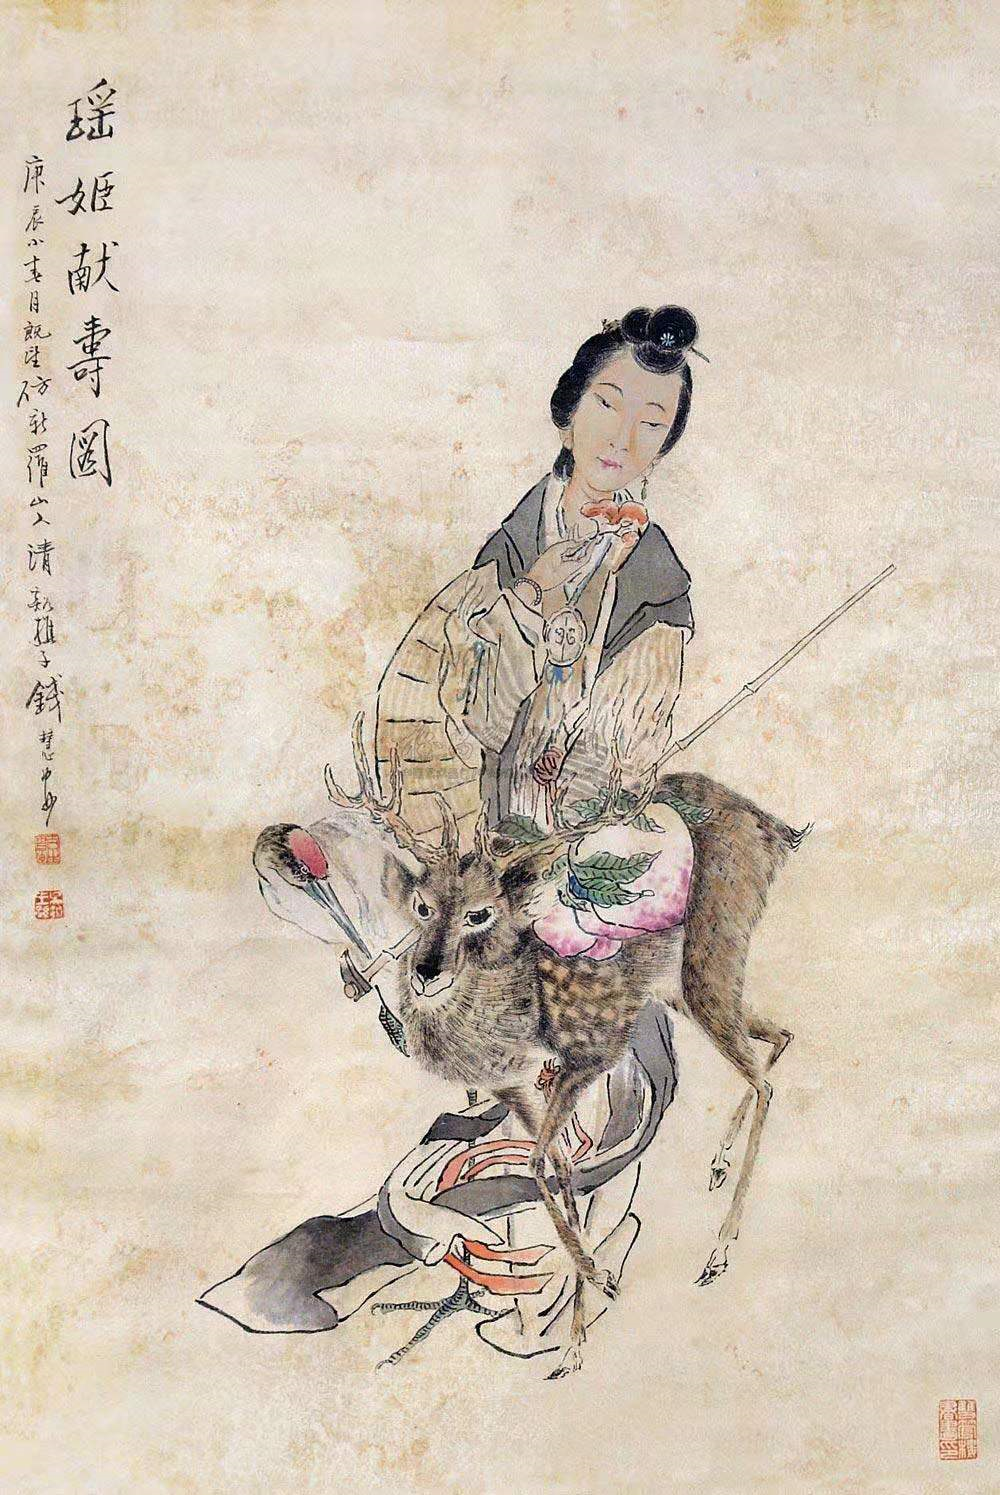 瑶姬献壽图
庚辰小春月既望仿新羅山人清谿樵子錢慧安